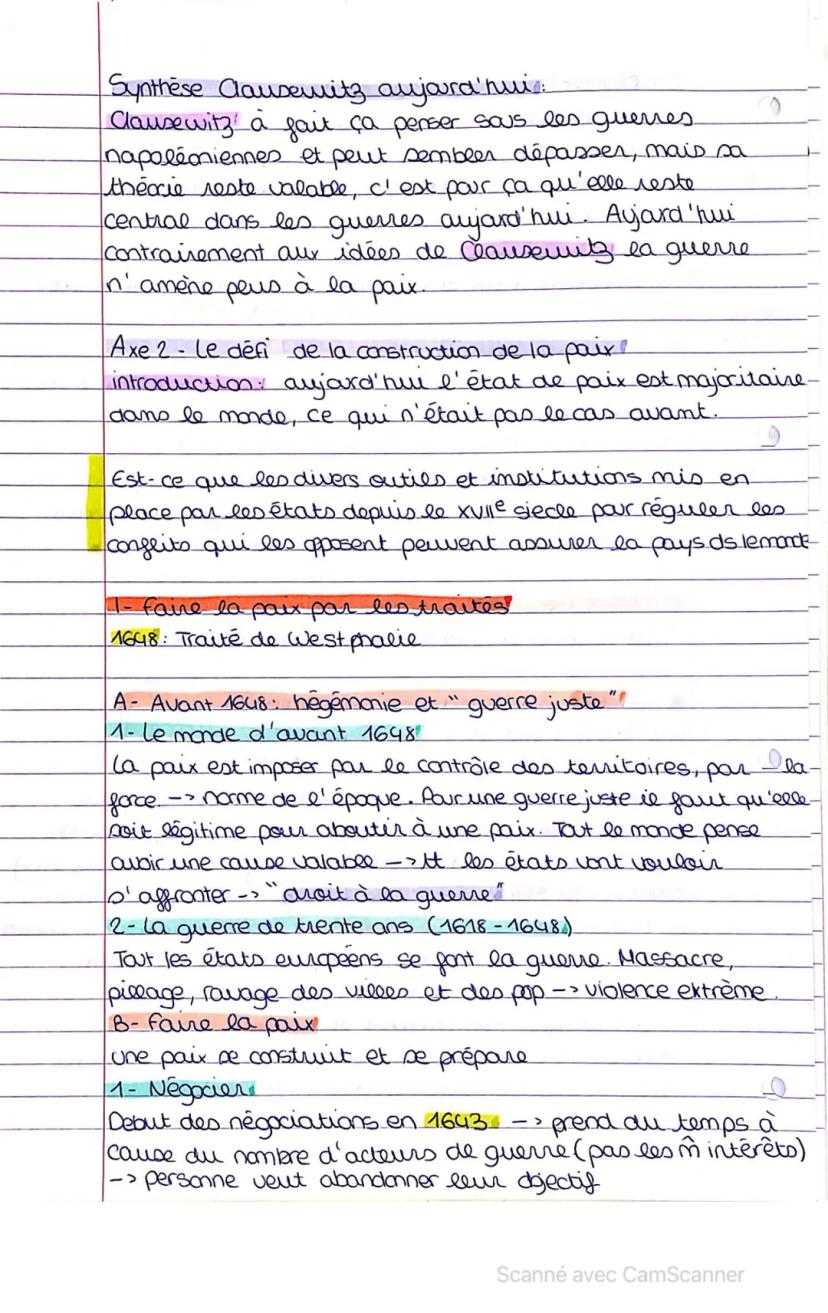 Synthèse Clausewitz aujourd'hui:
Clausewitz à fait ça penser sous les guerres
napoléoniennes et peut sembler dépasser, mais sa
théorie reste valable, c'est pour ça qu'elle reste
central dans les guerres aujourd'hui. Aujard'hui
contrairement aux idées de Clausewitz la guerre
n'amène plus à la paix.
Axe 2 - Le défi de la construction de la paix
introduction: aujourd'hui l'état de paix est majoritaire
dans le monde, ce qui n'était pas le cas avant.
Est-ce que les divers outils et institutions mis en
place par les états depuis le XVIIe siecle pour réguler les
conflits qui les opposent peuvent assurer la pays ds le monde
I- Faire la paix par les traités
1648: Traité de Westphalie
A- Avant 1648: hégémonie et "guerre juste"
1- Le monde d'avant 1648
La paix est imposer par le contrôle des territoires, par la
force. -> norme de l'époque. Pour une guerre juste il faut qu'elle
soit légitime pour aboutir à une paix. Tout le monde pense
avoir une cause valable -> tt les états vont vouloir
s'affronter -> "droit à la guerre"
2- La guerre de trente ans (1618 - 1648)
Tout les états européens se font la guerre. Massacre,
pillage, ravage des villes et des pop -> violence extrême.
B- Faire la paix
une paix se construit et se prépare
1- Négocier
Debut des négociations en 1643 -> prend du temps à
cause du nombre d'acteurs de guerre (pas les m̂ intérêts)
-> personne veut abandonner leur objectif
Scanné avec CamScanner